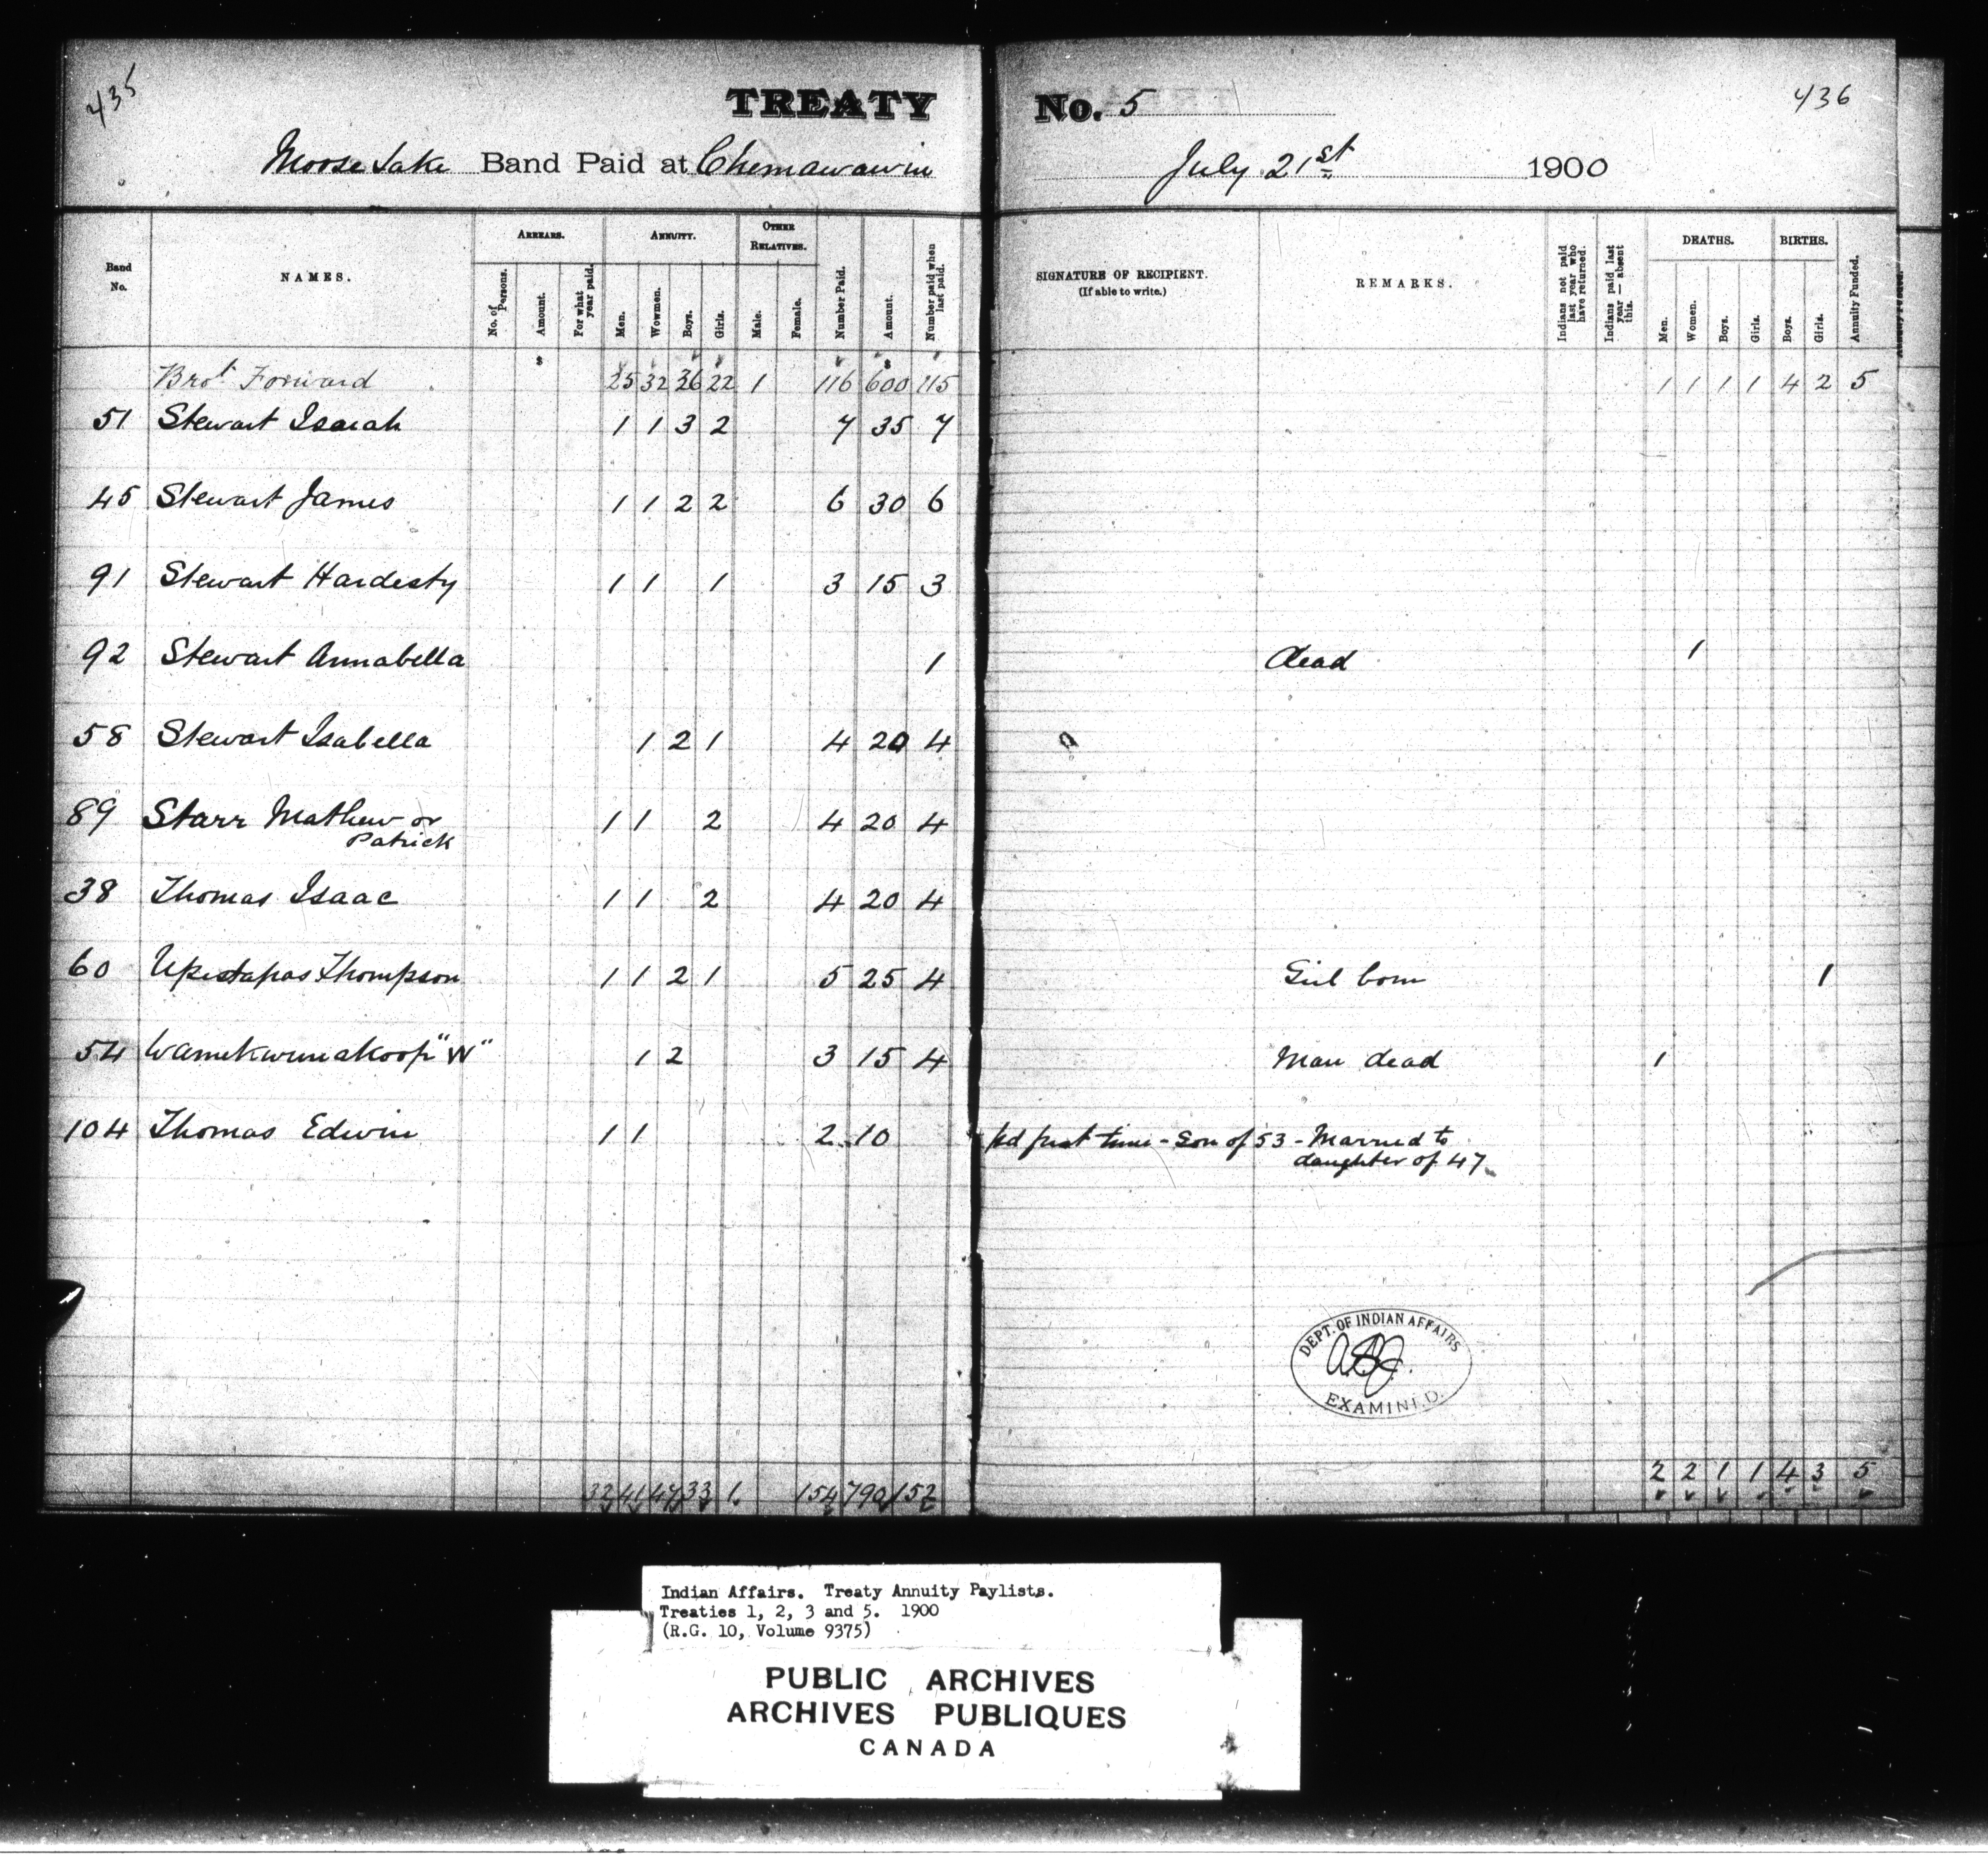 435
TREATY No. 5
436
Moose Lake Band Paid at Chemawawin July 21st 1900
Band No. NAMES. ARREARS. No. of Persons. Amount. For what year paid. ANNUITY. Men. Women. Boys. Girls. OTHER RELATIVES. Male. Female. Number Paid. Amount. Number paid when last paid. SIGNATURE OF RECIPIENT. (If able to write.) REMARKS. Indians not paid last year who have returned. Indians paid last year — absent this. DEATHS. Men. Women. Boys. Girls. BIRTHS. Boys. Girls. Annuity Funded.
$ $
Brot Forward 25 32 36 22 1 116 600 115 1 1 1 1 4 2 5
51 Stewart Isaiah 1 1 3 2 7 35 7
45 Stewart James 1 1 2 2 6 30 6
91 Stewart Hardesty 1 1 1 3 15 3
92 Stewart Annabella 1 dead 1
58 Stewart Isabella 1 2 1 4 20 4
89 Starr Mathew or 1 1 2 4 20 4
Patrick
38 Thomas Isaac 1 1 2 4 20 4
60 Thompson 1 1 2 1 5 25 4 Girl born 1
54 "W" 1 2 3 15 4 Man dead 1
104 Thomas Edwin 1 1 2 10 pd first time - Son of 53 - Married to
daughter of 47
DEPT. OF INDIAN AFFAIRS
EXAMINED.
32 41 47 33 1 154 790 152 2 2 1 1 4 3 5
Indian Affairs. Treaty Annuity Paylists.
Treaties 1, 2, 3 and 5. 1900
(R.G. 10, Volume 9375)
PUBLIC ARCHIVES
ARCHIVES PUBLIQUES
CANADA